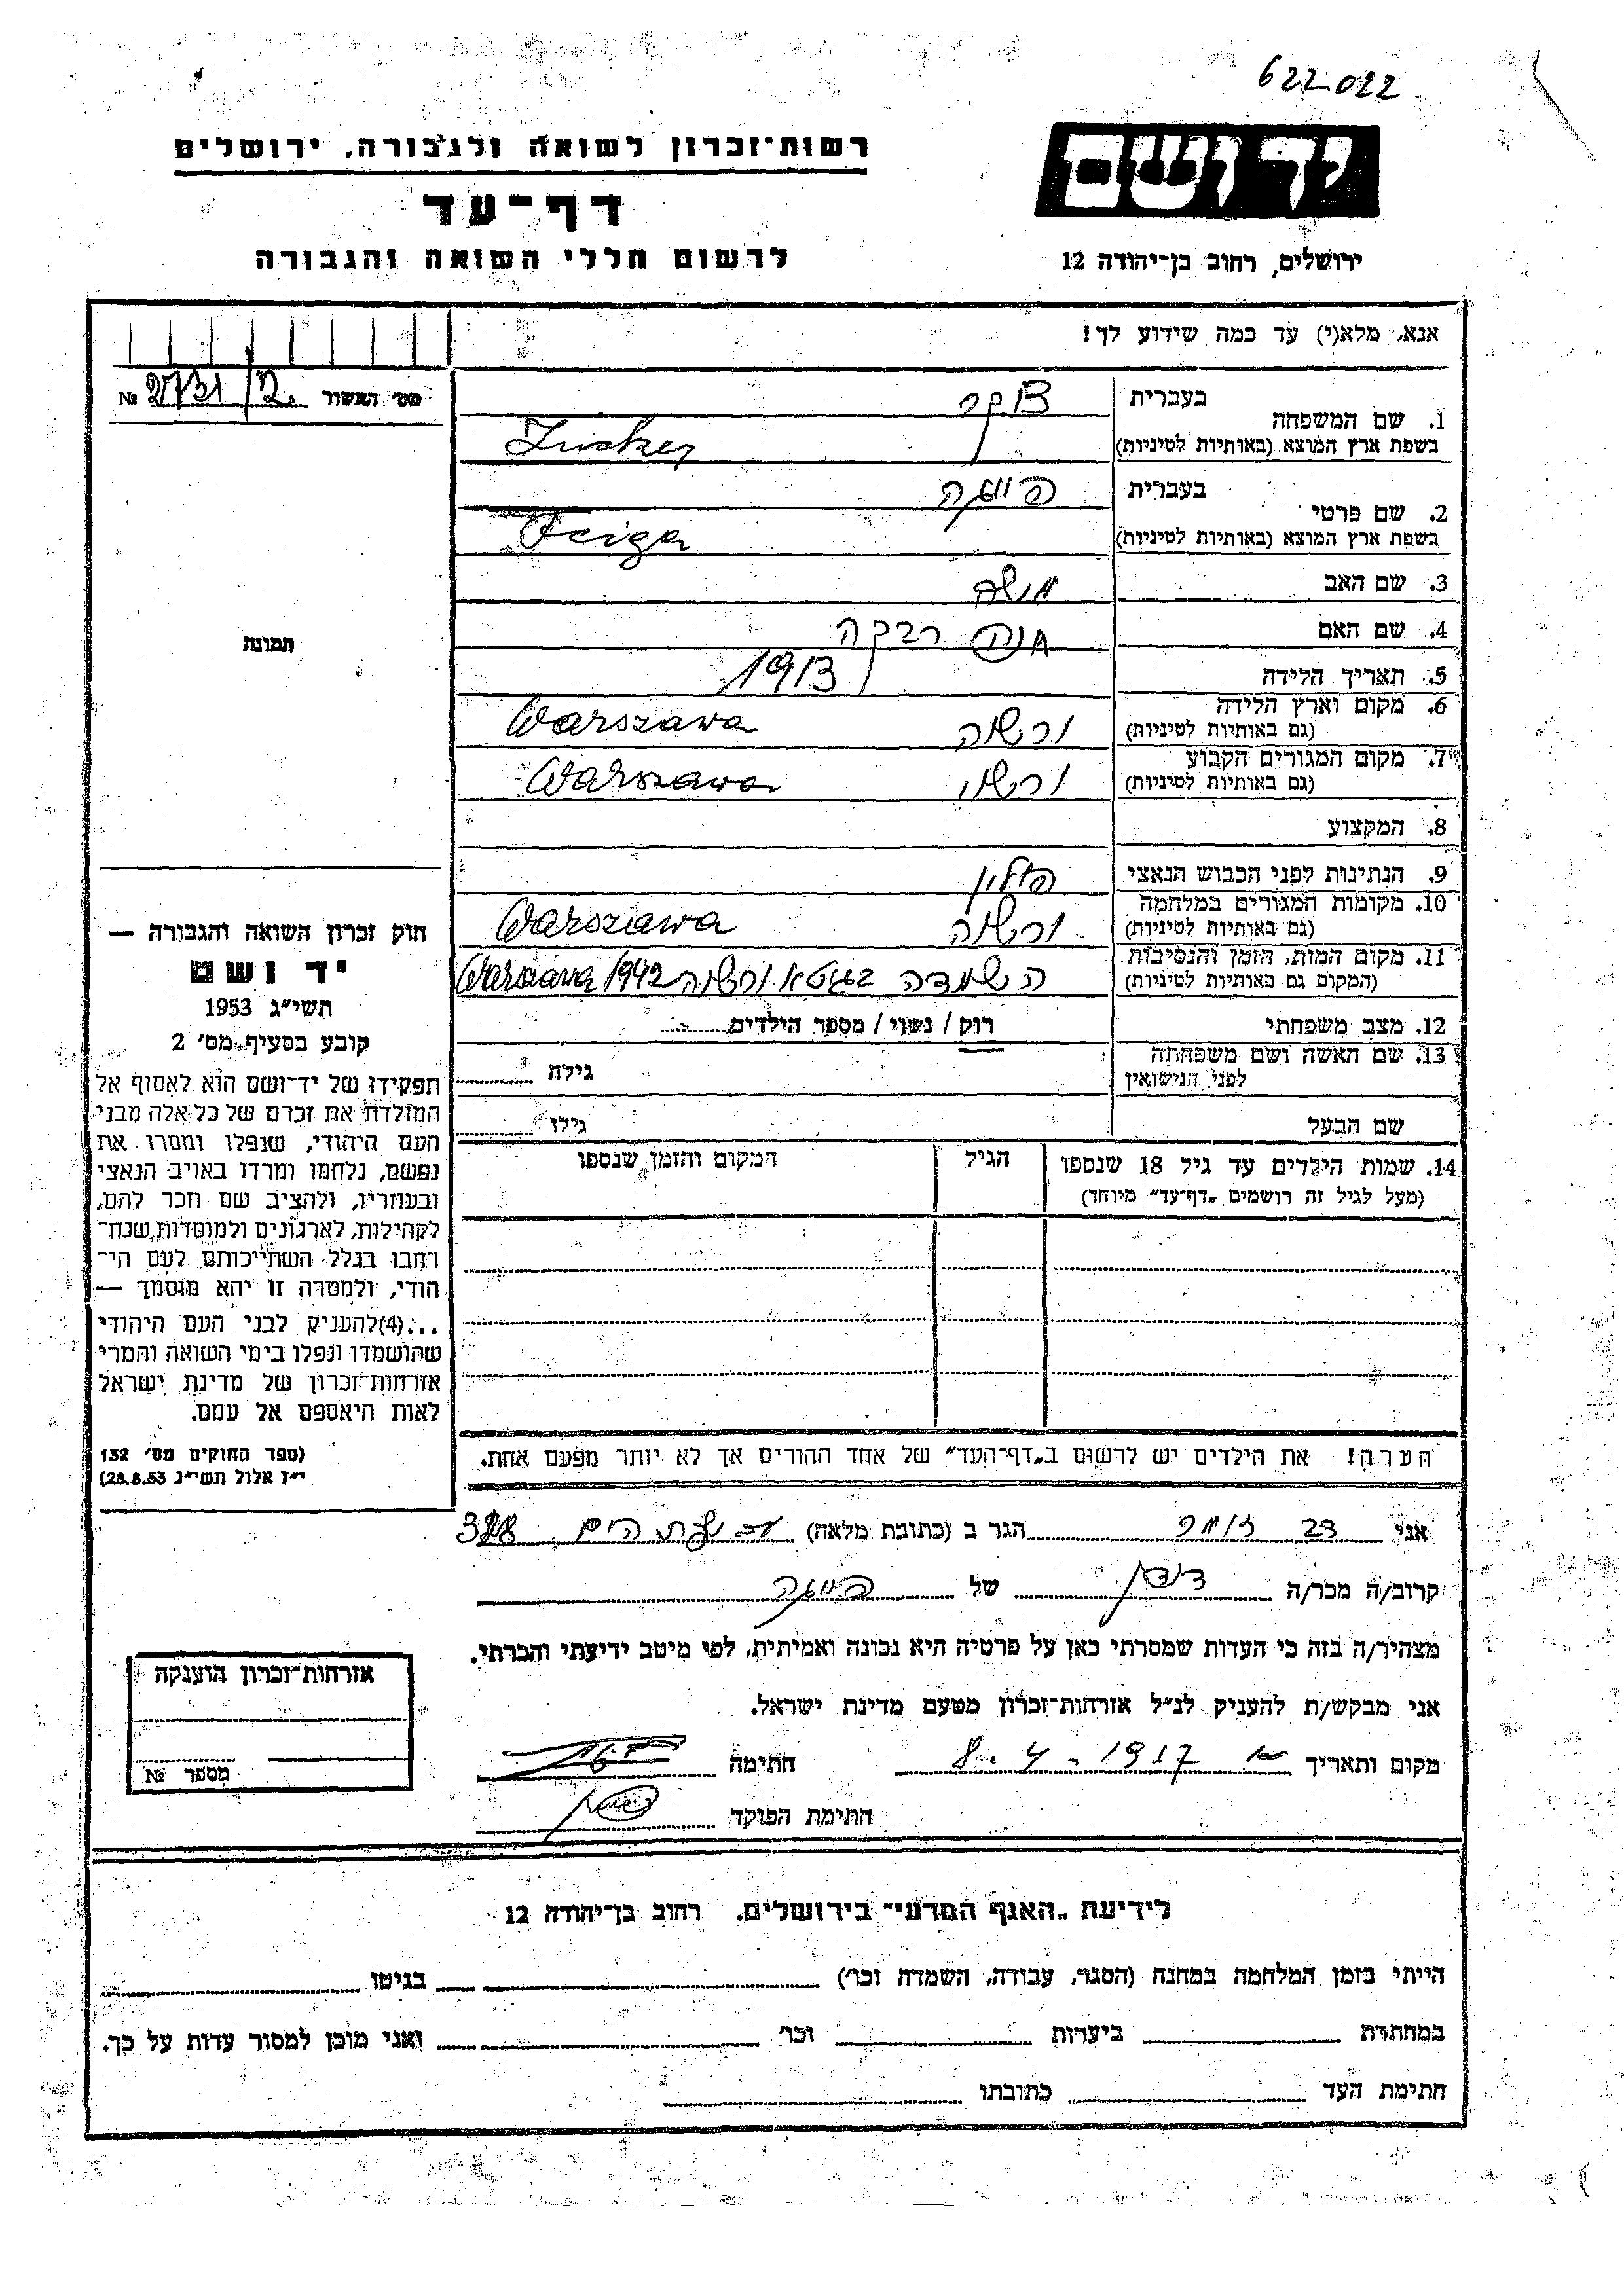 622022
רשות־זכרון לשואה ולגבורה, ירושלים
דף־עד
לרשום חללי השואה והגבורה
יד ושם
ירושלים, רחוב בן־יהודה 12
אנא, מלא(י) עד כמה שידוע לך!
מס׳ האשור 2731/2 №
1. שם המשפחה
בעברית צוקר
בשפת ארץ המוצא (באותיות לטיניות) Zucker
2. שם פרטי
בעברית פייגה
בשפת ארץ המוצא (באותיות לטיניות) Feiga
3. שם האב משה
4. שם האם חנה רבקה
5. תאריך הלידה 1913
6. מקום וארץ הלידה ורשה Warszawa
(גם באותיות לטיניות)
7. מקום המגורים הקבוע ורשה Warszawa
(גם באותיות לטיניות)
8. המקצוע
9. הנתינות לפני הכבוש הנאצי פולין
10. מקומות המגורים במלחמה ורשה Warszawa
(גם באותיות לטיניות)
11. מקום המות, הזמן והנסיבות השמדה בגטא ורשה Warszawa 1942
(המקום גם באותיות לטיניות)
12. מצב משפחתי רוק / נשוי / מספר הילדים
13. שם האשה ושם משפחתה
לפני הנישואין גילה
שם הבעל גילו
14. שמות הילדים עד גיל 18 שנספו הגיל המקום והזמן שנספו
(מעל לגיל זה רושמים „דף־עד״ מיוחד)
הערה! את הילדים יש לרשום ב„דף־העד״ של אחד ההורים אך לא יותר מפעם אחת.
תמונה
חוק זכרון השואה והגבורה —
יד ושם
תשי״ג 1953
קובע בסעיף מס׳ 2
תפקידו של יד־ושם הוא לאסוף אל
המולדת את זכרם של כל אלה מבני
העם היהודי, שנפלו ומסרו את
נפשם, נלחמו ומרדו באויב הנאצי
ובעוזריו, ולהציב שם וזכר להם,
לקהילות, לארגונים ולמוסדות שנח־
רבו בגלל השתייכותם לעם הי־
הודי, ולמטרה זו יהא מוסמך —
...(4)להעניק לבני העם היהודי
שהושמדו ונפלו בימי השואה והמרי
אזרחות־זכרון של מדינת ישראל
לאות היאספם אל עמם.
(ספר החוקים מס׳ 132
י״ז אלול תשי״ג 28.8.53)
אני הגר ב (כתובת מלאה) הים
קרוב/ה מכר/ה של פייגה
מצהיר/ה בזה כי העדות שמסרתי כאן על פרטיה היא נכונה ואמיתית, לפי מיטב ידיעתי והכרתי.
אני מבקש/ת להעניק לנ״ל אזרחות־זכרון מטעם מדינת ישראל.
מקום ותאריך חתימה
חתימת הפוקד
אזרחות־זכרון הוענקה
מספר №
לידיעת „האגף המדעי״ בירושלים, רחוב בן־יהודה 12
הייתי בזמן המלחמה במחנה (הסגר, עבודה, השמדה וכו׳) בגיטו
במחתרת ביערות וכו׳ ואני מוכן למסור עדות על כך.
חתימת העד כתובתו